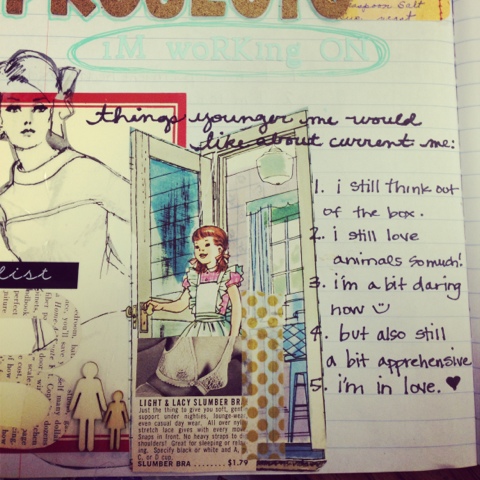 PROJECTS
iM WoRKing ON
teaspoon Salt
yeast
things younger me would
like about current me:
1. i still think out
of the box.
2. i still
love
animals so much!
3. i'm a bit daring
now
4. but also still
a bit apprehensive
5. i'm in love. ♥
list
LIGHT & LACY SLUMBER BR
Just the thing to give you soft, gent
support under nighties, lounge-wea
even casual day wear. All over nyl
stretch lace gives with every mov
Snaps in front. No heavy straps to d
shoulders! Great for sleeping or rela
ing. Specify black or white and A,
C, or D cup.
SLUMBER BRA ........ $1.79